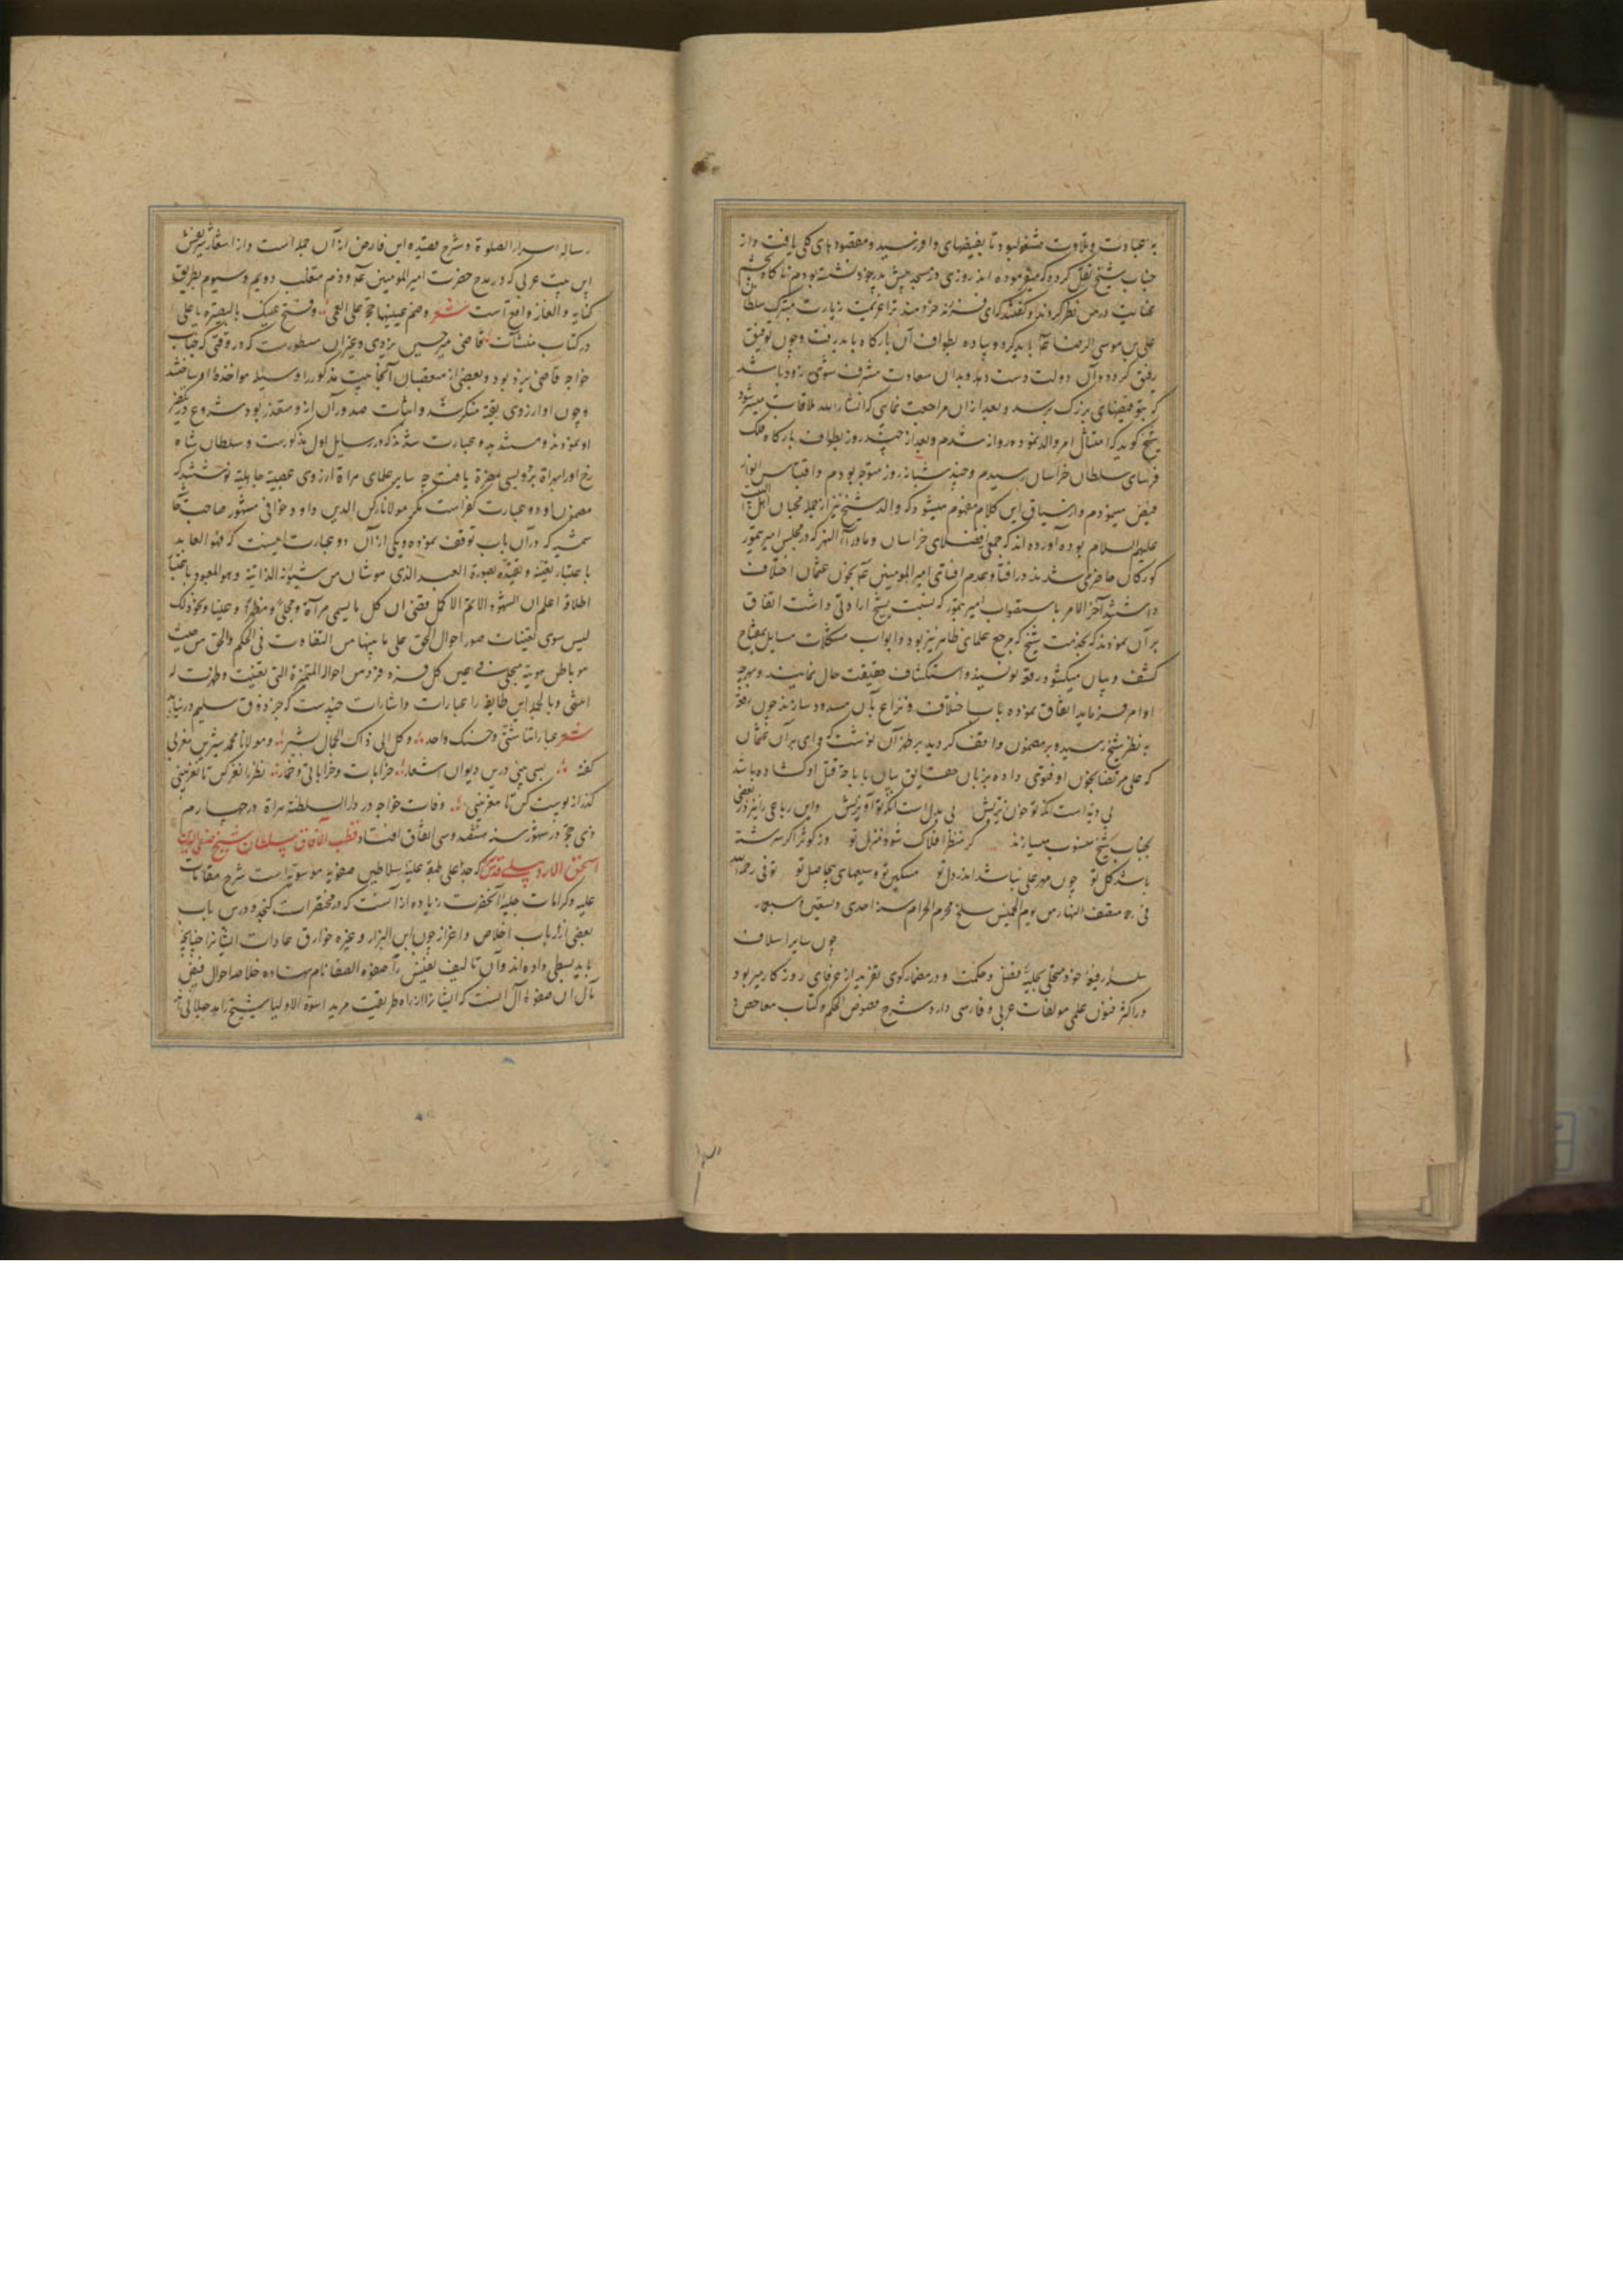 به عبادت و تلاوت مشغول بود تا بفیضهای وافر رسید و مقصودهای کلی یافت و از
جناب شیخ نقل کرده که میفرموده اند روزی در مسجد پیش پدر خود نشسته بودم ناگاه بچشم
عنایت در من نظر کردند و گفتند که ای فرزند خردمند ترا عزیمت زیارت مشترک سلطان
علی بن موسی الرضا باید کرد و پیاده بطواف آن بارگاه باید رفت و چون توفیق
رفیق گردد و آن دولت دست دهد و بدان سعادت مشرف شوی زود باشد
که بتو فیضهای بزرگ برسد و بعد از ان مراجعت نمایی که انشاء الله ملاقات میسر شود
شیخ گوید که امتثال امر والد نموده روانه شدم و بعد از چند روز بطواف بارگاه ملک
فرسای سلطان خراسان رسیدم و چند شبانه روز متوجه بودم و اقتباس انوار
فیض مینمودم و از سیاق این کلام مفهوم میشود که والد شیخ نیز از جمله محبان اهل البیت
علیهم السلام بوده آورده اند که جمعی از فضلای خراسان و ماوراء النهر که در مجلس امیر تیمور
کورکان حاضر می شدند در افتا و عدم افتای امیر المومنین بخون عثمان اختلاف
داشتند آخر الامر باستصواب امیر تیمور که بنسبت شیخ ارادتی داشت اتفاق
بر آن نمودند که بخدمت شیخ که مرجع علمای ظاهر نیز بود و ابواب مشکلات مسایل بمفتاح
کشف و بیان میکشود رقعه نویسند و استکشاف حقیقت حال نمایند و بهرچه
او امر فرماید اتفاق نموده باب اختلاف و نزاع بآن مسدود سازند چون رقعه
به نظر شیخ رسید و بر مضمون واقف گردید بر ظهر آن نوشت که وای بر آن عثمان
که علی مرتضا بخون او فتوی داده بزبان حقایق بیان یا باجه قتل او گشاده باشد
واین رباعی را نیز بعضی
بجناب شیخ منسوب میسازند گر منظر افلاک شود منزل تو وز کوثر اگر سرشته
باشد گل تو چون مهر علی نباشد اندر دل تو مسکین تو و سعیهای بیحاصل تو توفی رحمه الله
فی منتصف النهار من یوم الخمیس سلخ محرم الحرام سنه احدی و تسعین و سبعمائه
چون سایر اسلاف
سلسله رفیعه خود متحلی بحلیه فضل و حکمت و در مضمار کوی تفرید از عرفای روزگار میربود
در اکثر فنون علمی مولفات عربی و فارسی دارد شرح فصوص الحکم و کتاب مفاحص و
رساله اسرار الصلوة و شرح قصیده ابن فارض از آن جمله است و از اشعار شریفش
این بیت عربی که در مدح حضرت امیر المومنین و ذم متقلب دویم و سیوم بطریق
کنایه و الغاز واقع است شعر وضم عینیها حجة علی العمی وفتح عینک بالبصیره یا علی
در کتاب منشآت قاضی میرحسین یزدی و غیر آن مسطورست که در وقتی که جناب
خواجه قاضی یزد بود و بعضی از متعصبان آنجا بیت مذکور را وسیله مواخذه او ساختند
و چون او از روی تقیه منکر شد و اثبات صدور آن ازو متعذر بود شروع در تکفیر
او نمودند و متشبث بدو عبارت شدند که در رسایل اول مذکورست و سلطان شاه
رخ او را بهراة سایر علمای هراة از روی عصبیة جاهلیة نوشتند که
مضمون او دو عبارت کفر است مگر مولانا رکن الدین داود خوافی مشهور صاحب
که در آن باب توقف نموده و یکی از آن دو عبارت اینست که فهو العابد
باعتبار تعینه و تقیده بصورة العبد الذی هو شان من شئونه الذاتیة وهو المعبود باعتبار
اطلاقه اعلم ان الشهود الاتم الاکمل یقضی ان کل ما یسمی مرآة و مجلی و مظهرا و عینا و نحو ذلک
لیس سوی تعینات صور احوال الحق علی ما بینها من التفاوت فی الحکم والحق من حیث
هو باطن هویته متجلی فی عین کل فرد فرد من احواله المتمیزة التی تعینت و ظهرت له
انتهی و بالجمله این طایفه را عبارات و اشارات چندست که جز ذوق سلیم در نیابد
شعر عباراتنا شتی وحسنک واحد وکل الی ذاک الجمال یشیر و مولانا محمد شیرین مغربی
گفته بسی بینی درین دیوان اشعار خرابات و خراباتی و خمار نظر را نغز کن تا نغز بینی
گذر از پوست کن تا مغز بینی وفات خواجه در دار السلطنه هراة در چهاردهم
ذی حجة در شهور سنه ستة و سی اتفاق افتاد قطب الآفاق سلطان شیخ صفی الدین
اسحق الاردبیلی قدس که جد اعلی طبقه علیه سلاطین صفویه موسویه است شرح مقامات
علیه و کرامات جلیه آنحضرت زیاده از آنست که در مختصرات گنجد و درین باب
بعضی از ارباب اخلاص و اعزاز چون ابن البزاز و غیره خوارق عادات ایشانرا چنانچه
باید بسطی داده اند و آن تالیف نفیس را صفوة الصفا نام نهاده خلاصه احوال فیض
مآل آن صفوه آل آنست که ایشانرا از راه طریقت مرید اسوة الاولیا شیخ زاهد جیلانی اند